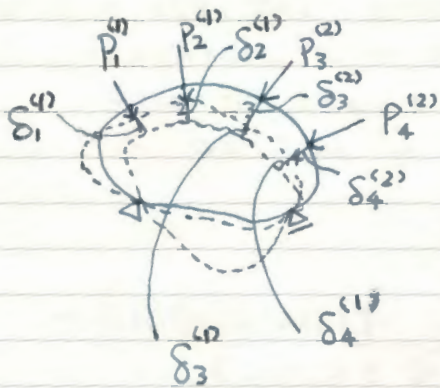 P₁⁽¹⁾ P₂⁽¹⁾ δ₂⁽¹⁾ P₃⁽²⁾
δ₁⁽¹⁾ δ₃⁽²⁾ P₄⁽²⁾
δ₄⁽²⁾
δ₃⁽¹⁾ δ₄⁽¹⁾